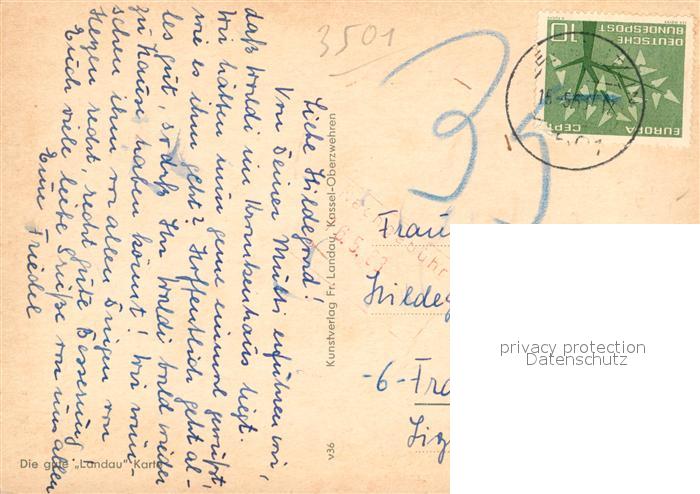 3501
33
EUROPA
CEPT
DEUTSCHE
BUNDESPOST
10
Liebe Hildegard!
Von Deiner Mutti erfuhren wir,
daß Waldi im Krankenhaus liegt.
Wir hätten nun gerne einmal gewußt,
wie es ihm geht? Hoffentlich geht al-
les gut, sodaß Ihr Waldi bald wieder
zu Hause haben könnt! Wir wün-
schen ihm vor allen Dingen von
Herzen recht, recht gute Besserung. –
Euch viele liebe Grüße von uns allen
Eure Friedel
Kunstverlag Fr. Landau, Kassel-Oberzwehren
v36
Die gute „Landau" Karte
Frau
Hildeg
-6- Fra
privacy protection
Datenschutz